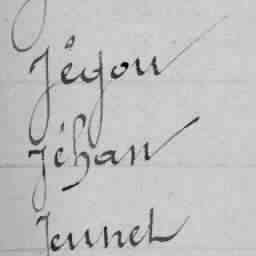 Jégou
Jéhan
Jeunet